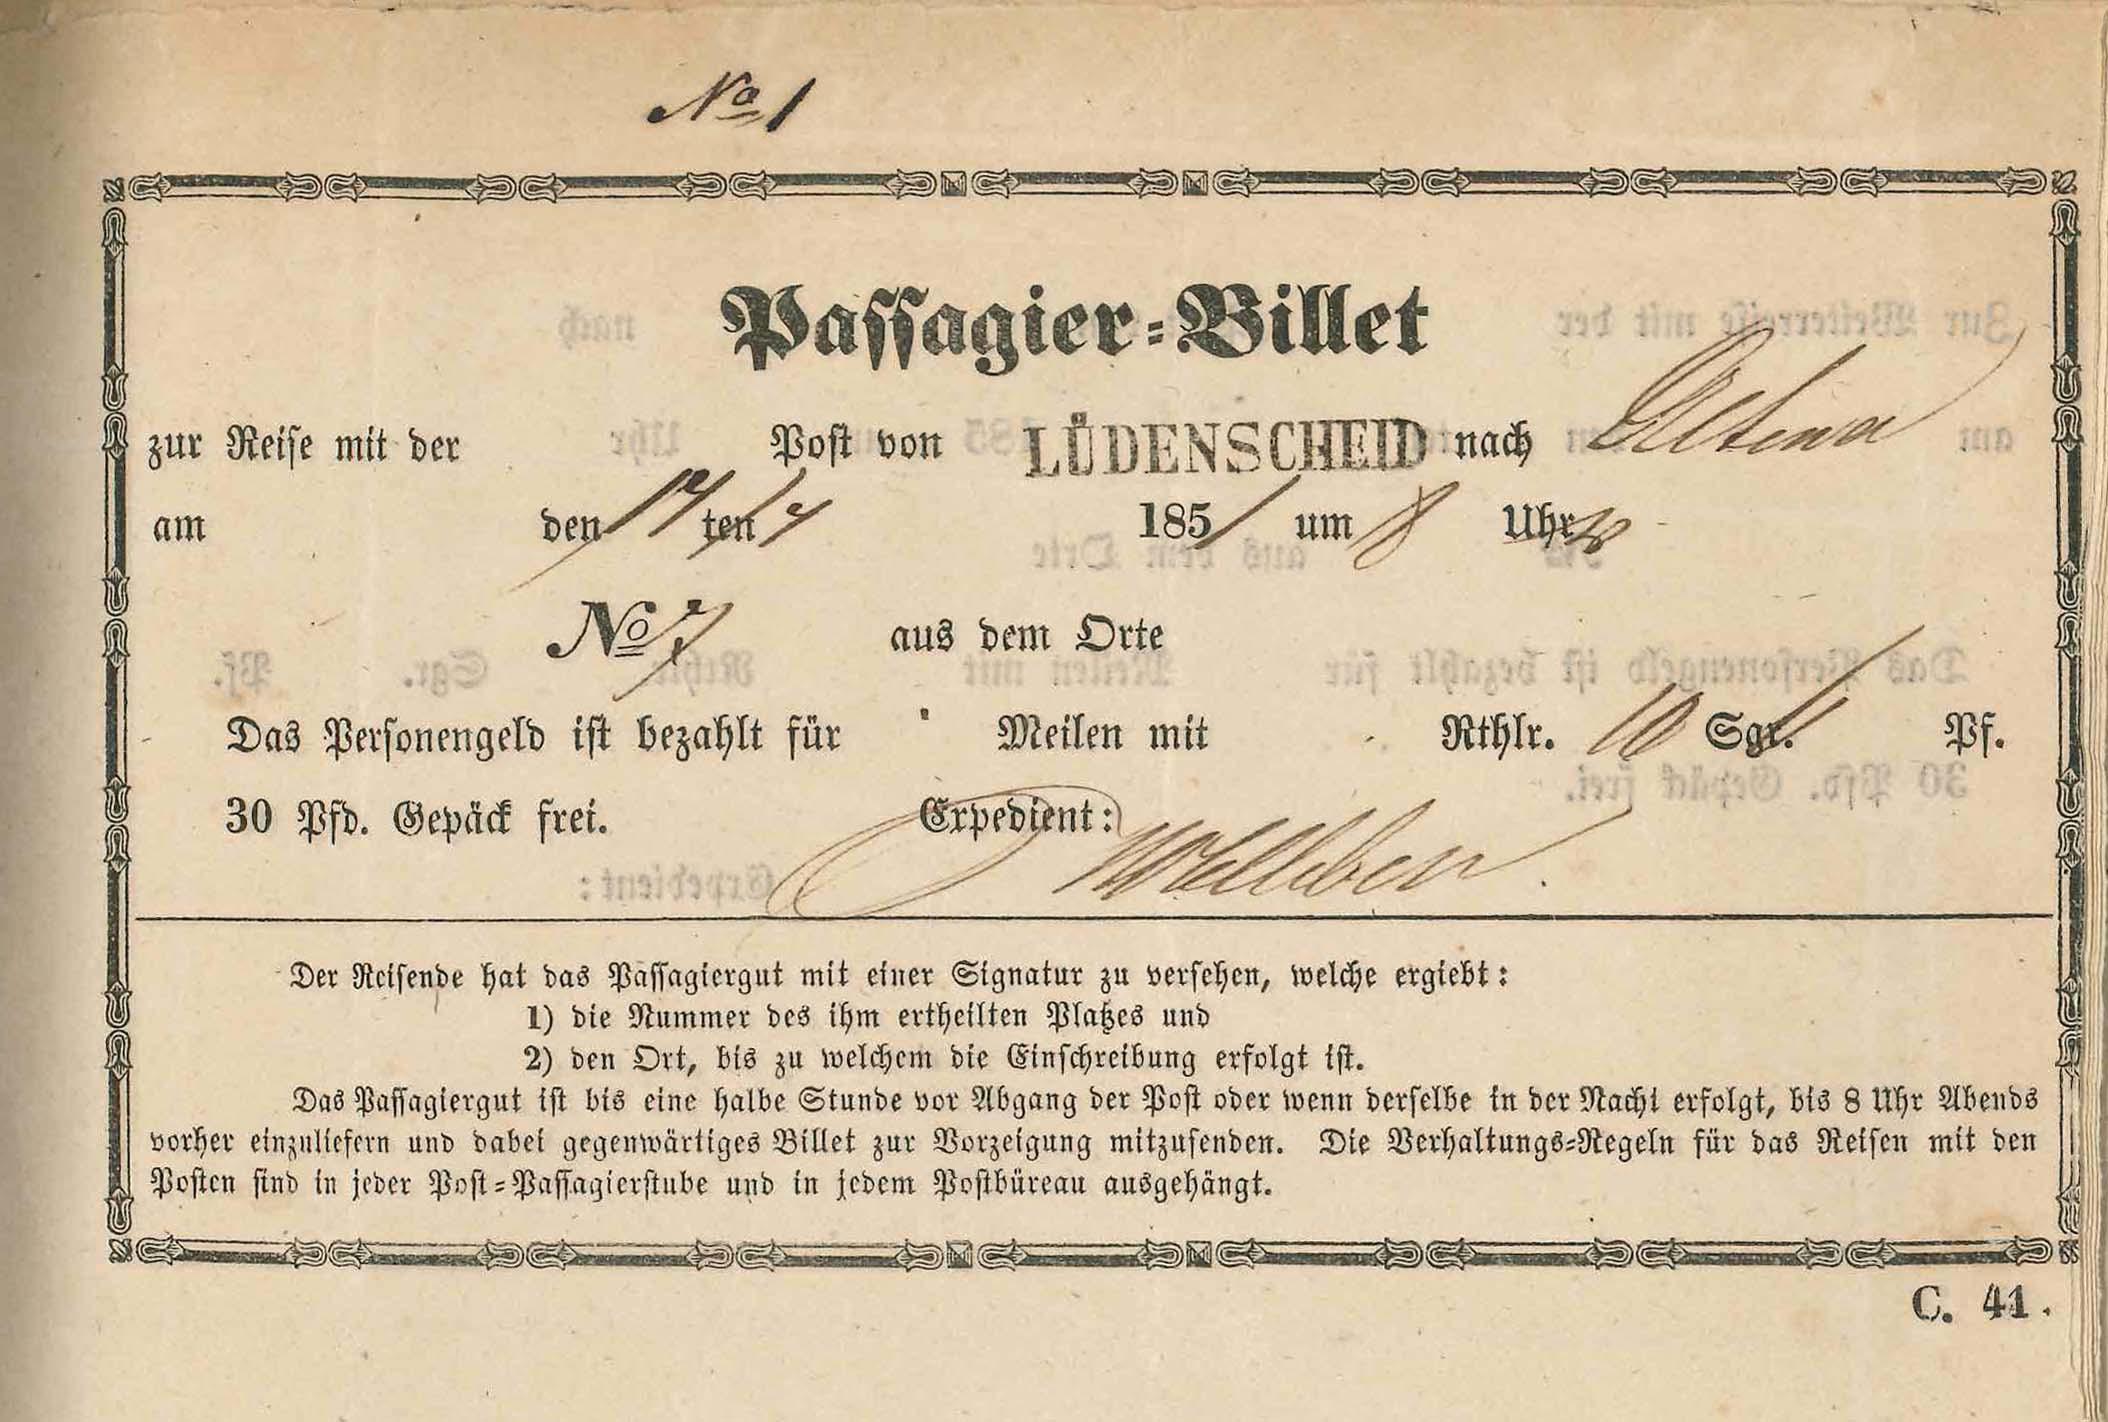 No 1
Passagier=Billet
zur Reise mit der Post von LÜDENSCHEID nach Altena
am den 17 ten 4 1851 um 8 Uhr
No 7 aus dem Orte
Das Personengeld ist bezahlt für Meilen mit Rthlr. 10 Sgr. Pf.
30 Pfd. Gepäck frei. Expedient:
Der Reisende hat das Passagiergut mit einer Signatur zu versehen, welche ergiebt:
1) die Nummer des ihm ertheilten Platzes und
2) den Ort, bis zu welchem die Einschreibung erfolgt ist.
Das Passagiergut ist bis eine halbe Stunde vor Abgang der Post oder wenn derselbe in der Nacht erfolgt, bis 8 Uhr Abends
vorher einzuliefern und dabei gegenwärtiges Billet zur Vorzeigung mitzusenden. Die Verhaltungs=Regeln für das Reisen mit den
Posten sind in jeder Post=Passagierstube und in jedem Postbüreau ausgehängt.
C. 41.